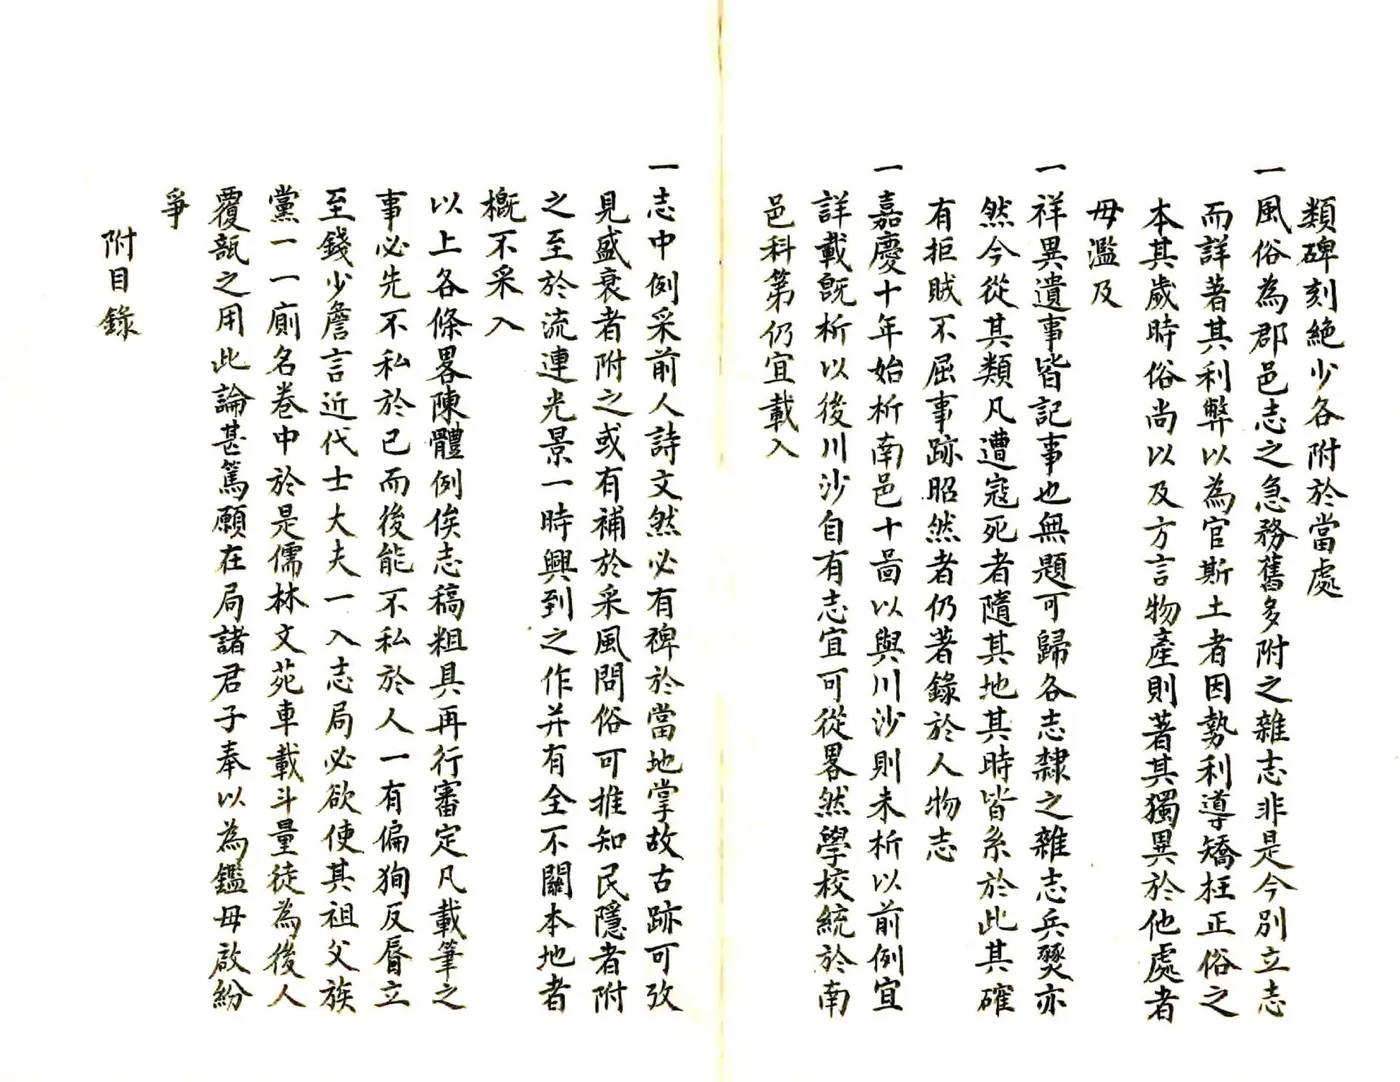 類碑刻絕少各附於當處
一風俗為郡邑志之急務舊多附之雜志非是今別立志
而詳著其利弊以為官斯土者因勢利導矯枉正俗之
本其歲時俗尚以及方言物產則著其獨異於他處者
毋濫及
一祥異遺事皆記事也無題可歸各志隸之雜志兵燹亦
然今從其類凡遭寇死者隨其地其時皆系於此其確
有拒賊不屈事跡昭然者仍著錄於人物志
一嘉慶十年始析南邑十啚以與川沙則未析以前例宜
詳載旣析以後川沙自有志宜可從畧然學校統於南
邑科第仍宜載入
一志中例采前人詩文然必有裨於當地掌故古跡可攷
見盛衰者附之或有補於采風問俗可推知民隱者附
之至於流連光景一時興到之作幷有全不關本地者
槪不采入
以上各條畧陳體例俟志稿粗具再行審定凡載筆之
事必先不私於己而後能不私於人一有偏狥反脣立
至錢少詹言近代士大夫一入志局必欲使其祖父族
黨一一廁名卷中於是儒林文苑車載斗量徒為後人
覆瓿之用此論甚篤願在局諸君子奉以為鑑毋啟紛
爭
附目錄